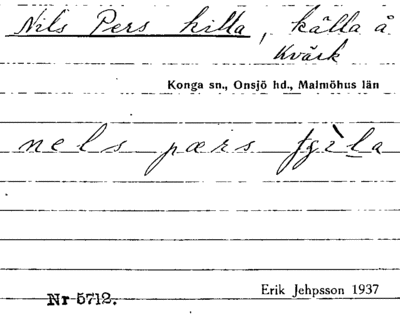 Nils Pers killa, källa å
Kvärk
Konga sn., Onsjö hd., Malmöhus län
nels pærs
Erik Jehpsson 1937
Nr 5712.